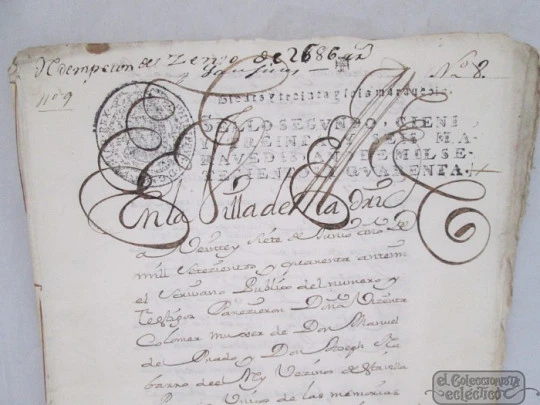 Redempcion del Zenso de 2686
Nº 8.
nº 9
ciento y treinta y seis maravedis.
SELLO SEGVNDO, CIENT
Y TREINTA Y SEIS MA-
RAVEDIS, AÑO DE MIL SE-
TECIENTOS Y QVARENTA.
En la Villa de Madrid
a Veinte y siete de Junio año de
mill setezientos y quarenta antemi
el Scrivano Publico del numero y
testigos Parezieron Doña Vicenta
Colomer muxer de Don Manuel
de Prado y Don Joseph Na
barro del Rey Vezinos de esta villa
Vnicos de las memorias
el Coleccionista
ecléctico